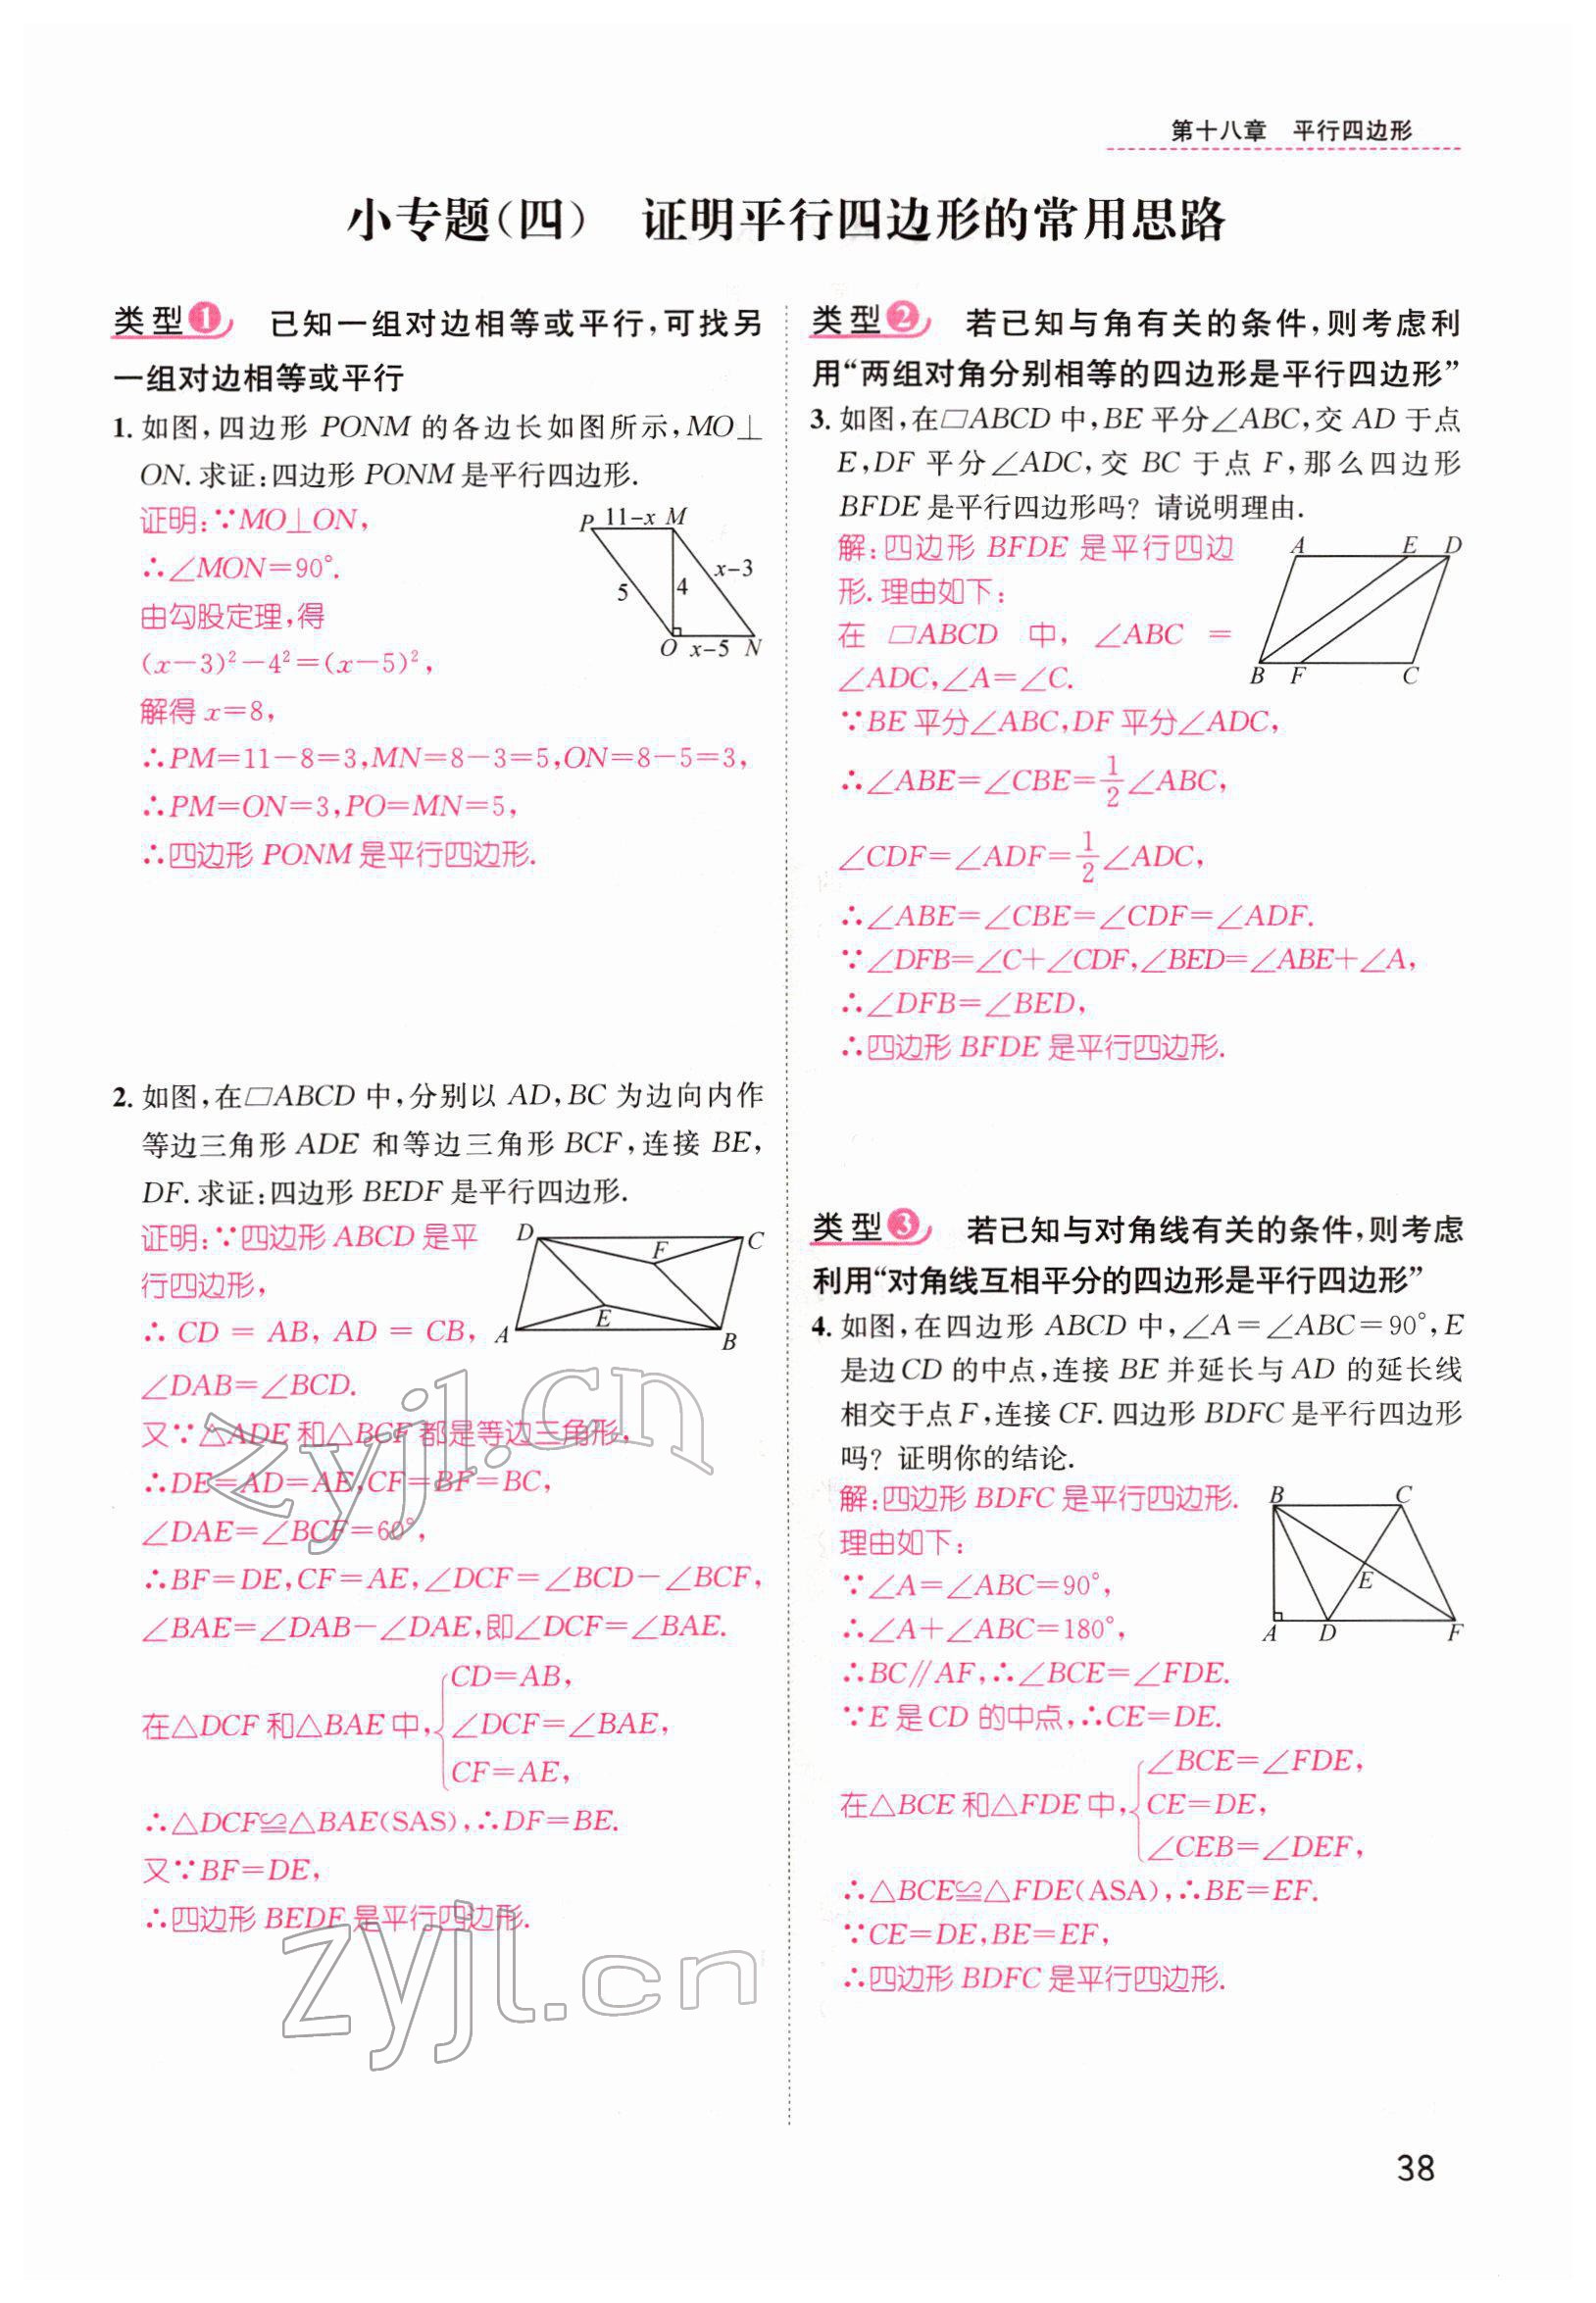 第十八章 平行四边形
小专题(四) 证明平行四边形的常用思路
类型1 已知一组对边相等或平行,可找另
一组对边相等或平行
1. 如图,四边形 PONM 的各边长如图所示,MO⊥
ON.求证:四边形 PONM 是平行四边形.
证明:∵MO⊥ON,
∴∠MON=90°.
由勾股定理,得
(x-3)²-4²=(x-5)²,
解得 x=8,
∴PM=11-8=3,MN=8-3=5,ON=8-5=3,
∴PM=ON=3,PO=MN=5,
∴四边形 PONM 是平行四边形.
P 11-x M
x-3
5 4
O x-5 N
2. 如图,在▱ABCD 中,分别以 AD,BC 为边向内作
等边三角形 ADE 和等边三角形 BCF,连接 BE,
DF.求证:四边形 BEDF 是平行四边形.
证明:∵四边形 ABCD 是平
行四边形,
∴ CD = AB, AD = CB,
∠DAB=∠BCD.
又∵△ADE 和△BCF 都是等边三角形,
∴DE=AD=AE,CF=BF=BC,
∠DAE=∠BCF=60°,
∴BF=DE,CF=AE,∠DCF=∠BCD-∠BCF,
∠BAE=∠DAB-∠DAE,即∠DCF=∠BAE.
CD=AB,
在△DCF 和△BAE 中,∠DCF=∠BAE,
CF=AE,
∴△DCF≌△BAE(SAS),∴DF=BE.
又∵BF=DE,
∴四边形 BEDF 是平行四边形.
D C
F
E
A B
类型2 若已知与角有关的条件,则考虑利
用“两组对角分别相等的四边形是平行四边形”
3. 如图,在▱ABCD 中,BE 平分∠ABC,交 AD 于点
E,DF 平分∠ADC,交 BC 于点 F,那么四边形
BFDE 是平行四边形吗? 请说明理由.
解:四边形 BFDE 是平行四边
形.理由如下:
在 ▱ABCD 中, ∠ABC =
∠ADC,∠A=∠C.
∵BE 平分∠ABC,DF 平分∠ADC,
∴∠ABE=∠CBE=1/2∠ABC,
∠CDF=∠ADF=1/2∠ADC,
∴∠ABE=∠CBE=∠CDF=∠ADF.
∵∠DFB=∠C+∠CDF,∠BED=∠ABE+∠A,
∴∠DFB=∠BED,
∴四边形 BFDE 是平行四边形.
A E D
B F C
类型3 若已知与对角线有关的条件,则考虑
利用“对角线互相平分的四边形是平行四边形”
4. 如图,在四边形 ABCD 中,∠A=∠ABC=90°,E
是边 CD 的中点,连接 BE 并延长与 AD 的延长线
相交于点 F,连接 CF.四边形 BDFC 是平行四边形
吗? 证明你的结论.
解:四边形 BDFC 是平行四边形.
理由如下:
∵∠A=∠ABC=90°,
∴∠A+∠ABC=180°,
∴BC∥AF,∴∠BCE=∠FDE.
∵E 是 CD 的中点,∴CE=DE.
∠BCE=∠FDE,
在△BCE 和△FDE 中,CE=DE,
∠CEB=∠DEF,
∴△BCE≌△FDE(ASA),∴BE=EF.
∵CE=DE,BE=EF,
∴四边形 BDFC 是平行四边形.
B C
E
A D F
zyjl.cn
zyjl.cn
38